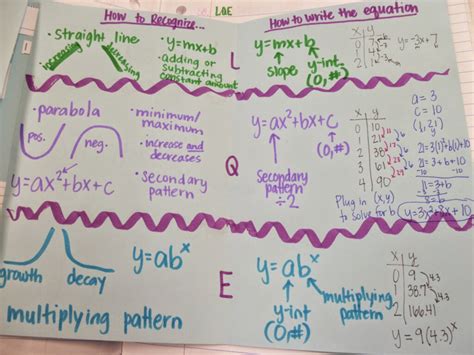 LQE
How to Recognize...
• straight line
increasing
decreasing
• y=mx+b
• Adding or
subtracting
constant amount
L
How to write the equation
y=mx+b
slope
y-int
(0,#)
x y
0 7
1
2
y=-3x+7
• parabola
pos.
neg.
y=ax²+bx+c
• minimum/
maximum
• increase and
decreases
• secondary
pattern
Q
y=ax²+bx+c
Secondary
pattern
÷2
(0,#)
x y
0 10
1 21
2 38
3 61
4 90
a = 3
c = 10
(1, 21)
21=3(1)²+b(1)+10
21=3+b+10
-13
8=b
Plug in (x,y)
to solve for b
y=3x²+8x+10
growth
decay
y=abˣ
multiplying pattern
E
y=abˣ
y-int
(0,#)
multiplying
pattern
x y
0 9
1 38.7
2 166.41
·4.3
·4.3
y=9(4.3)ˣ